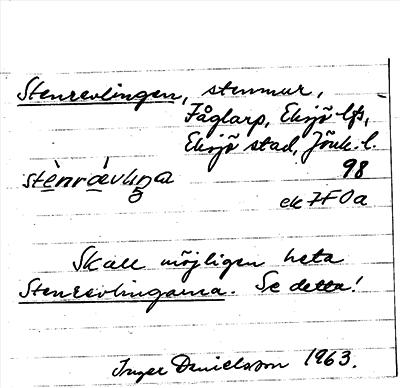 Stenrevlingen, stenmur,
Fåglarp, Eksjö lfs,
Eksjö stad, Jönk. l.
98
ek 7F0a
Skall möjligen heta
Stenrevlingarna. Se detta!
Inger Danielsson 1963.